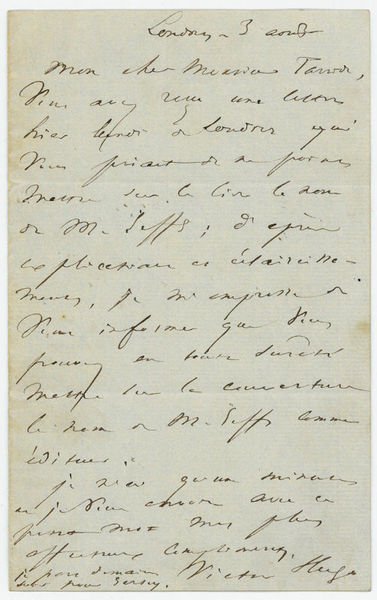 Londres - 3 août
Mon cher Monsieur Tarride,
Vous avez reçu une lettre
hier lundi de Londres qui
vous priait de ne pas
mettre sur le livre le nom
de M. Jeffs ; d'après
explications et éclaircisse-
mens, je m'empresse de
vous informer que vous
pouvez en toute sûreté
mettre sur la couverture
le nom de M. Jeffs comme
éditeur.
je n'ai qu'une minute
et je vous envoie avec ce
petit mot mes plus
affectueux compliments.
Victor Hugo
je pars demain
soir pour Jersey.